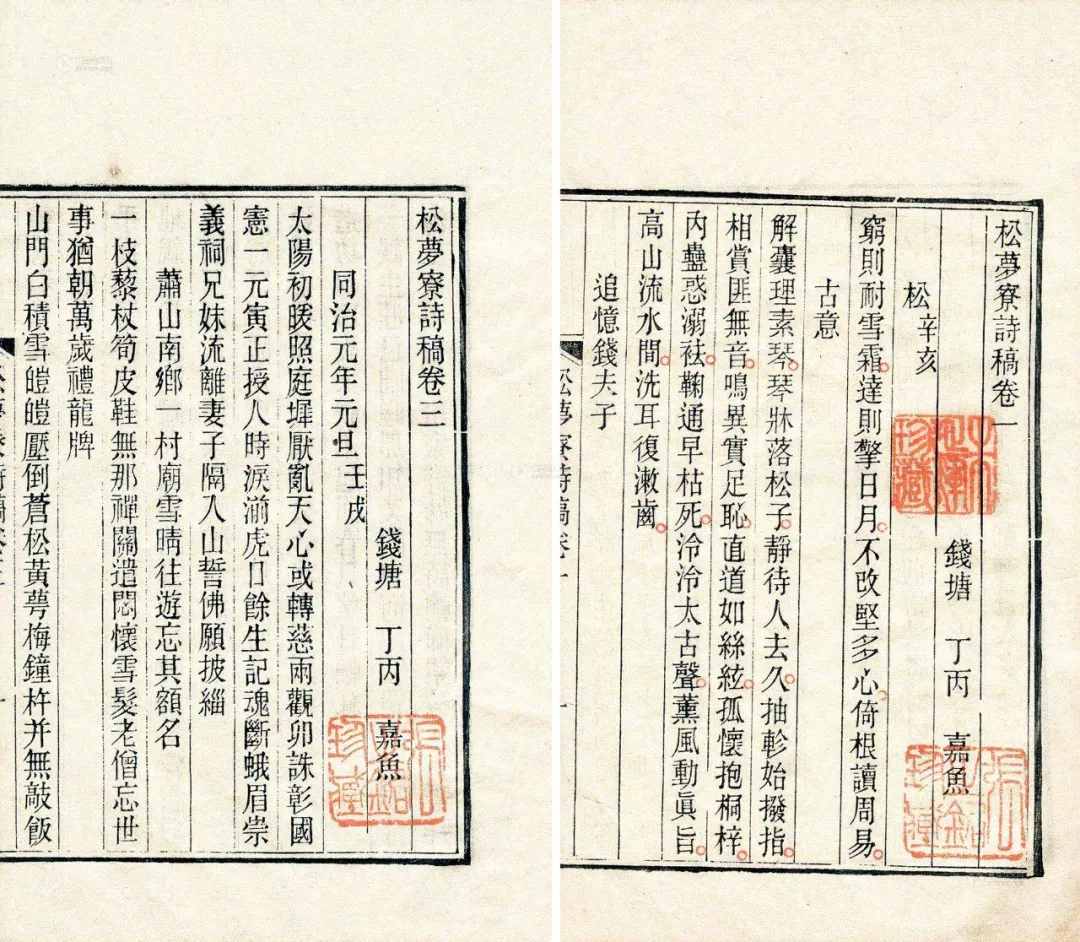 松夢寮詩稿卷一
錢塘 丁丙 嘉魚
松辛亥
窮則耐雪霜。達則擎日月。不改堅多心。倚根讀周易。
古意
解囊理素琴。琴牀落松子。靜待人去久。抽軫始撥指。
相賞匪無音。鳴異實足恥。直道如絲絃。孤懷抱桐梓。
內蠱惑溺袪。鞠通早枯死。泠泠太古聲。薰風動眞旨。
高山流水間。洗耳復漱齒。
追憶錢夫子
珍藏
珍藏
松夢寮詩稿卷一
一
松夢寮詩稿卷三
錢塘 丁丙 嘉魚
同治元年元旦壬戌
太陽初暖照庭墀厭亂天心或轉慈兩觀卯誅彰國
憲一元寅正授人時淚湔虎口餘生記魂斷蛾眉崇
義祠兄妹流離妻子隔入山誓佛願披緇
蕭山南鄉一村廟雪晴往遊忘其額名
一枝藜杖筍皮鞋無那禪關遣悶懷雪髮老僧忘世
事猶朝萬歲禮龍牌
山門白積雪皚皚壓倒蒼松黃萼梅鐘杵并無敲飯
珍藏